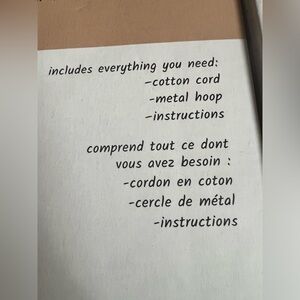 includes everything you need:
-cotton cord
-metal hoop
-instructions
comprend tout ce dont
vous avez besoin :
-cordon en coton
-cercle de métal
-instructions